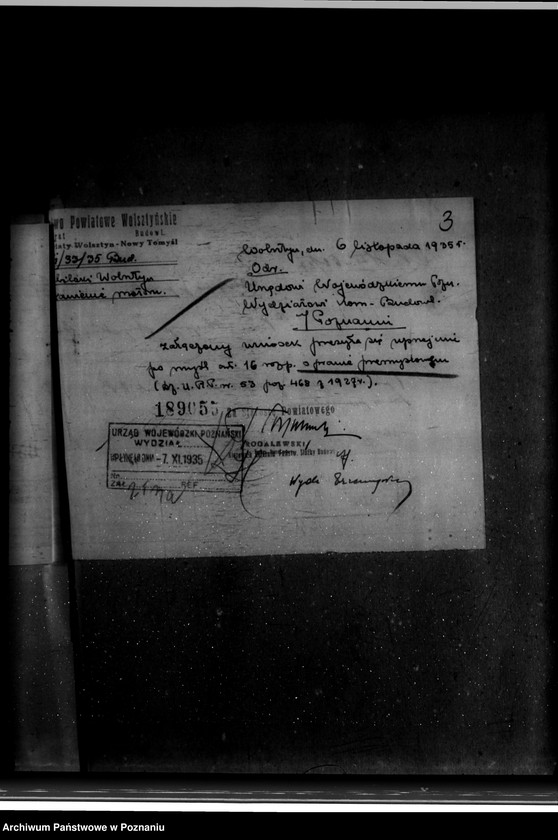 3
wo Powiatowe Wolsztyńskie
rat Budowl.
iaty Wolsztyn - Nowy Tomyśl
/33/35 Bud.
Wolsztyn, dn. 6 listopada 1935 r.
Odr.
Urzędowi Wojewódzkiemu Pozn.
Wydziałowi Kom.-Budowl.
w Poznaniu
załączony wniosek przesyła się uprzejmie
po myśli art. 16 rozp. o prawie przemysłowym
(Dz. U. R.P. nr. 53 poz. 468 z 1927 r.).
189055
Powiatowego
ROGALEWSKI
URZĄD WOJEWÓDZKI POZNAŃSKI
WYDZIAŁ
WPŁYNĘŁO DNIA -7. XI. 1935
Nr.
ZAŁ. REF.
Archiwum Państwowe w Poznaniu